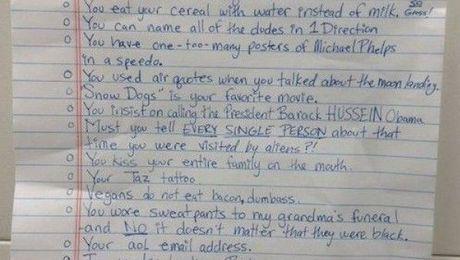 You eat your cereal with water instead of milk. SO Gross!
You can name all of the dudes in 1 Direction
You have one-too-many posters of Michael Phelps
in a speedo.
You used air quotes when you talked about the moon landing.
"Snow Dogs" is your favorite movie.
You insist on calling the President Barack HUSSEIN Obama
Must you tell EVERY SINGLE PERSON about that
time you were visited by aliens?!
You kiss your entire family on the mouth.
Your Taz tattoo
Vegans do not eat bacon, dumbass.
You wore sweatpants to my grandma's funeral
and NO it doesn't matter that they were black.
Your aol email address.